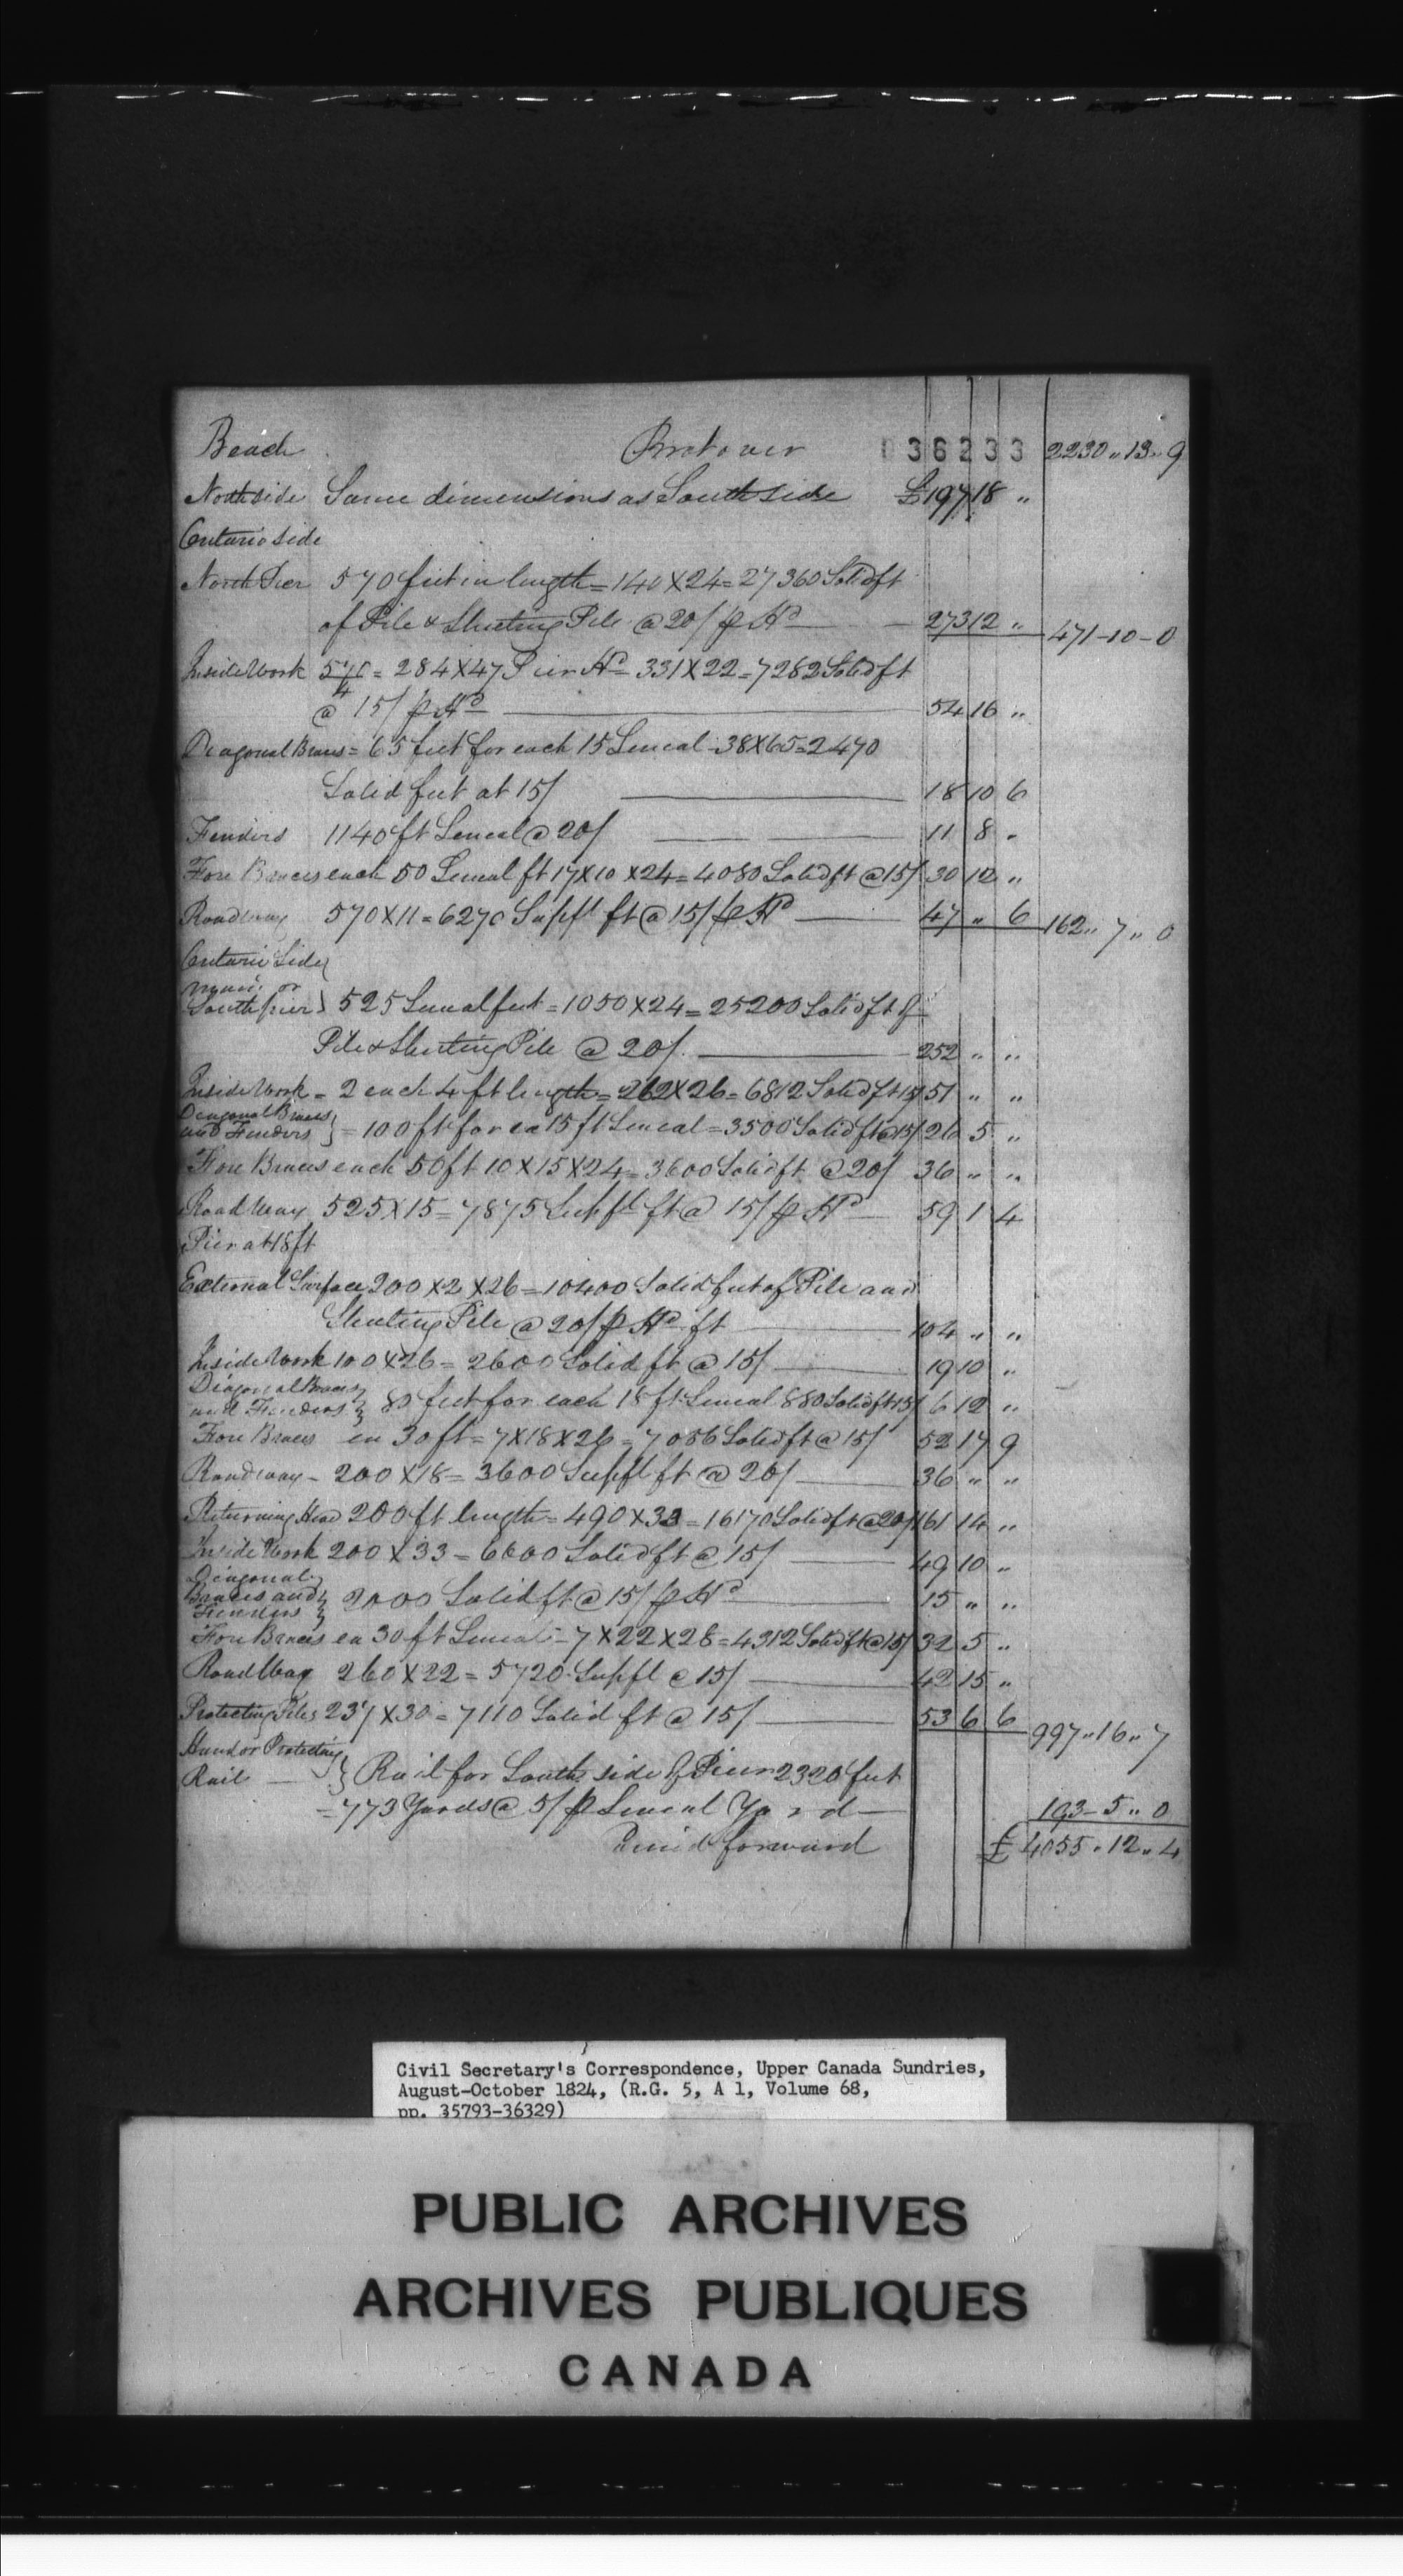 Beach Brot over 036233 2230 〃 13 〃 9
North side Same dimensions as South side £197 18 〃
Ontario side
North Pier 570 feet in length = 140 X 24 = 27360 Solid ft
of Pile & Sheeting Pile @ 20/ p Hd 273 12 〃 471 - 10 - 0
Inside Work 570/4 = 284 X 47 Pier Hd = 331 X 22 = 7282 Solid ft
@ 15/ p Hd 54 16 〃
Diagonal Braces = 65 feet for each 15 Lineal - 38 X 65 = 2470
Solid feet at 15/ 18 10 6
Fenders 1140 ft Lineal @ 20/ 11 8 〃
Fore Braces each 50 Lineal ft 17 X 10 X 24 = 4080 Solid ft @ 15/ 30 12 〃
Roadway 570 X 11 = 6270 Supfl ft @ 15/ p Hd 47 〃 6 162 〃 7 〃 0
Ontario Side
or
South pier } 525 Lineal feet = 1050 X 24 = 25200 Solid ft of
Pile & Sheeting Pile @ 20/. 252 〃 〃
Inside Work = 2 each 4 ft length = 262 X 26 = 6812 Solid ft 15/ 51 〃 〃
Diagonal Braces
and Fenders } = 100 ft for ea 15 ft Lineal = 3500 Solid ft @ 15/ 26 5 〃
Fore Braces each 50 ft 10 X 15 X 24 = 3600 Solid ft @ 20/ 36 〃 〃
Road Way 525 X 15 = 7875 Supfl ft @ 15/ p Hd 59 1 4
Pier at 18 ft
External Surface 200 X 2 X 26 = 10400 Solid feet of Pile and
Sheeting Pile @ 20/ p Hd ft 104 〃 〃
Inside Work 100 X 26 = 2600 Solid ft @ 15/ 19 10 〃
Diagonal Braces
and Fenders } 80 feet for each 18 ft Lineal 880 Solid ft 15/ 6 12 〃
Fore Braces ea 30 ft = 7 X 18 X 26 = 7056 Solid ft @ 15/ 52 17 9
Roadway - 200 X 18 = 3600 Supfl ft @ 20/ 36 〃 〃
Returning Head 200 ft length = 490 X 33 = 16170 Solid ft @ 20/ 161 14 〃
Inside Work 200 X 33 = 6600 Solid ft @ 15/ 49 10 〃
Diagonal
Braces and
Fenders } 2000 Solid ft @ 15/ p Hd 15 〃 〃
Fore Braces ea 30 ft Lineal - 7 X 22 X 28 = 4312 Solid ft @ 15/ 32 5 〃
Road Way 260 X 22 = 5720 Supfl @ 15/ 42 15 〃
Protecting Piles 237 X 30 = 7110 Solid ft @ 15/ 53 6 6 997 〃 16 〃 7
Hand or Protecting
Rail } Rail for South side of Pier 2320 feet
= 773 Yards @ 5/ p Lineal Yard 193 - 5 〃 0
forward £ 4055 〃 12 〃 4
Civil Secretary's Correspondence, Upper Canada Sundries,
August-October 1824, (R.G. 5, A 1, Volume 68,
pp. 35793-36329)
PUBLIC ARCHIVES
ARCHIVES PUBLIQUES
CANADA